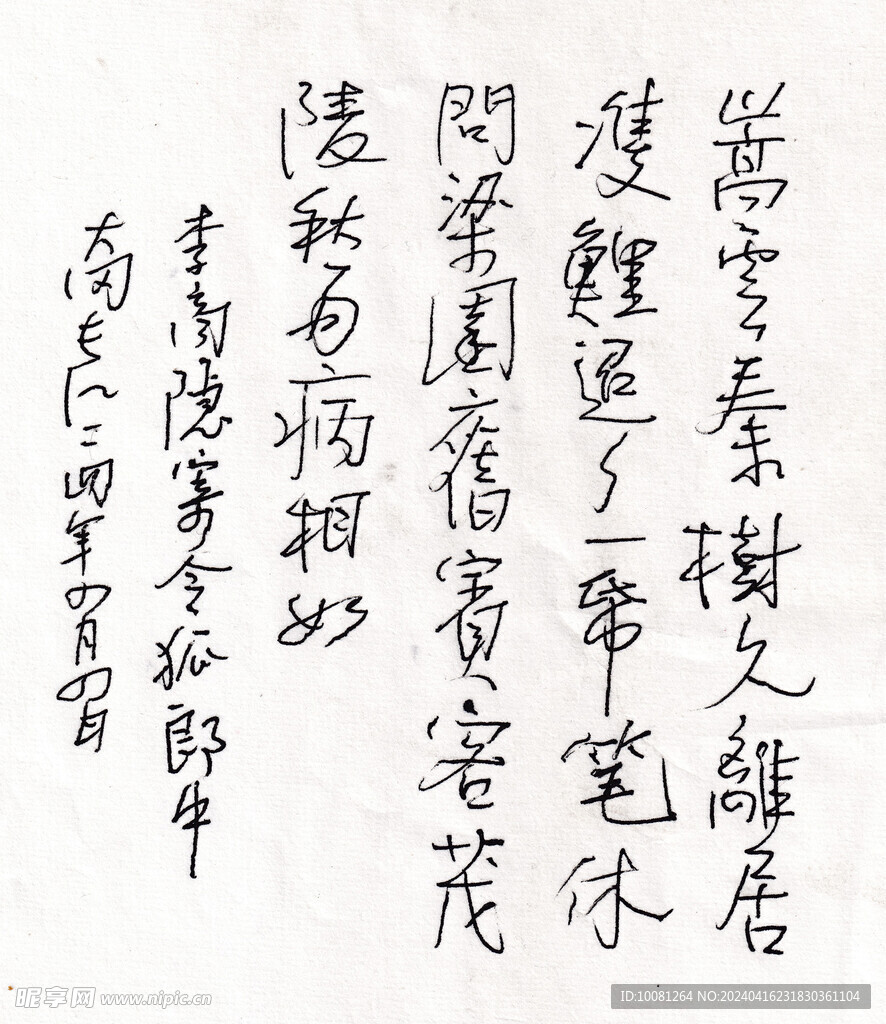 嵩雲秦樹久離居
雙鯉迢々一帋笔休
問梁園舊賓客茂
陵秋雨病相如
李商隐寄令狐郎中
二四年四月四日
昵享网 www.nipic.cn
ID:10081264 NO:20240416231830361104